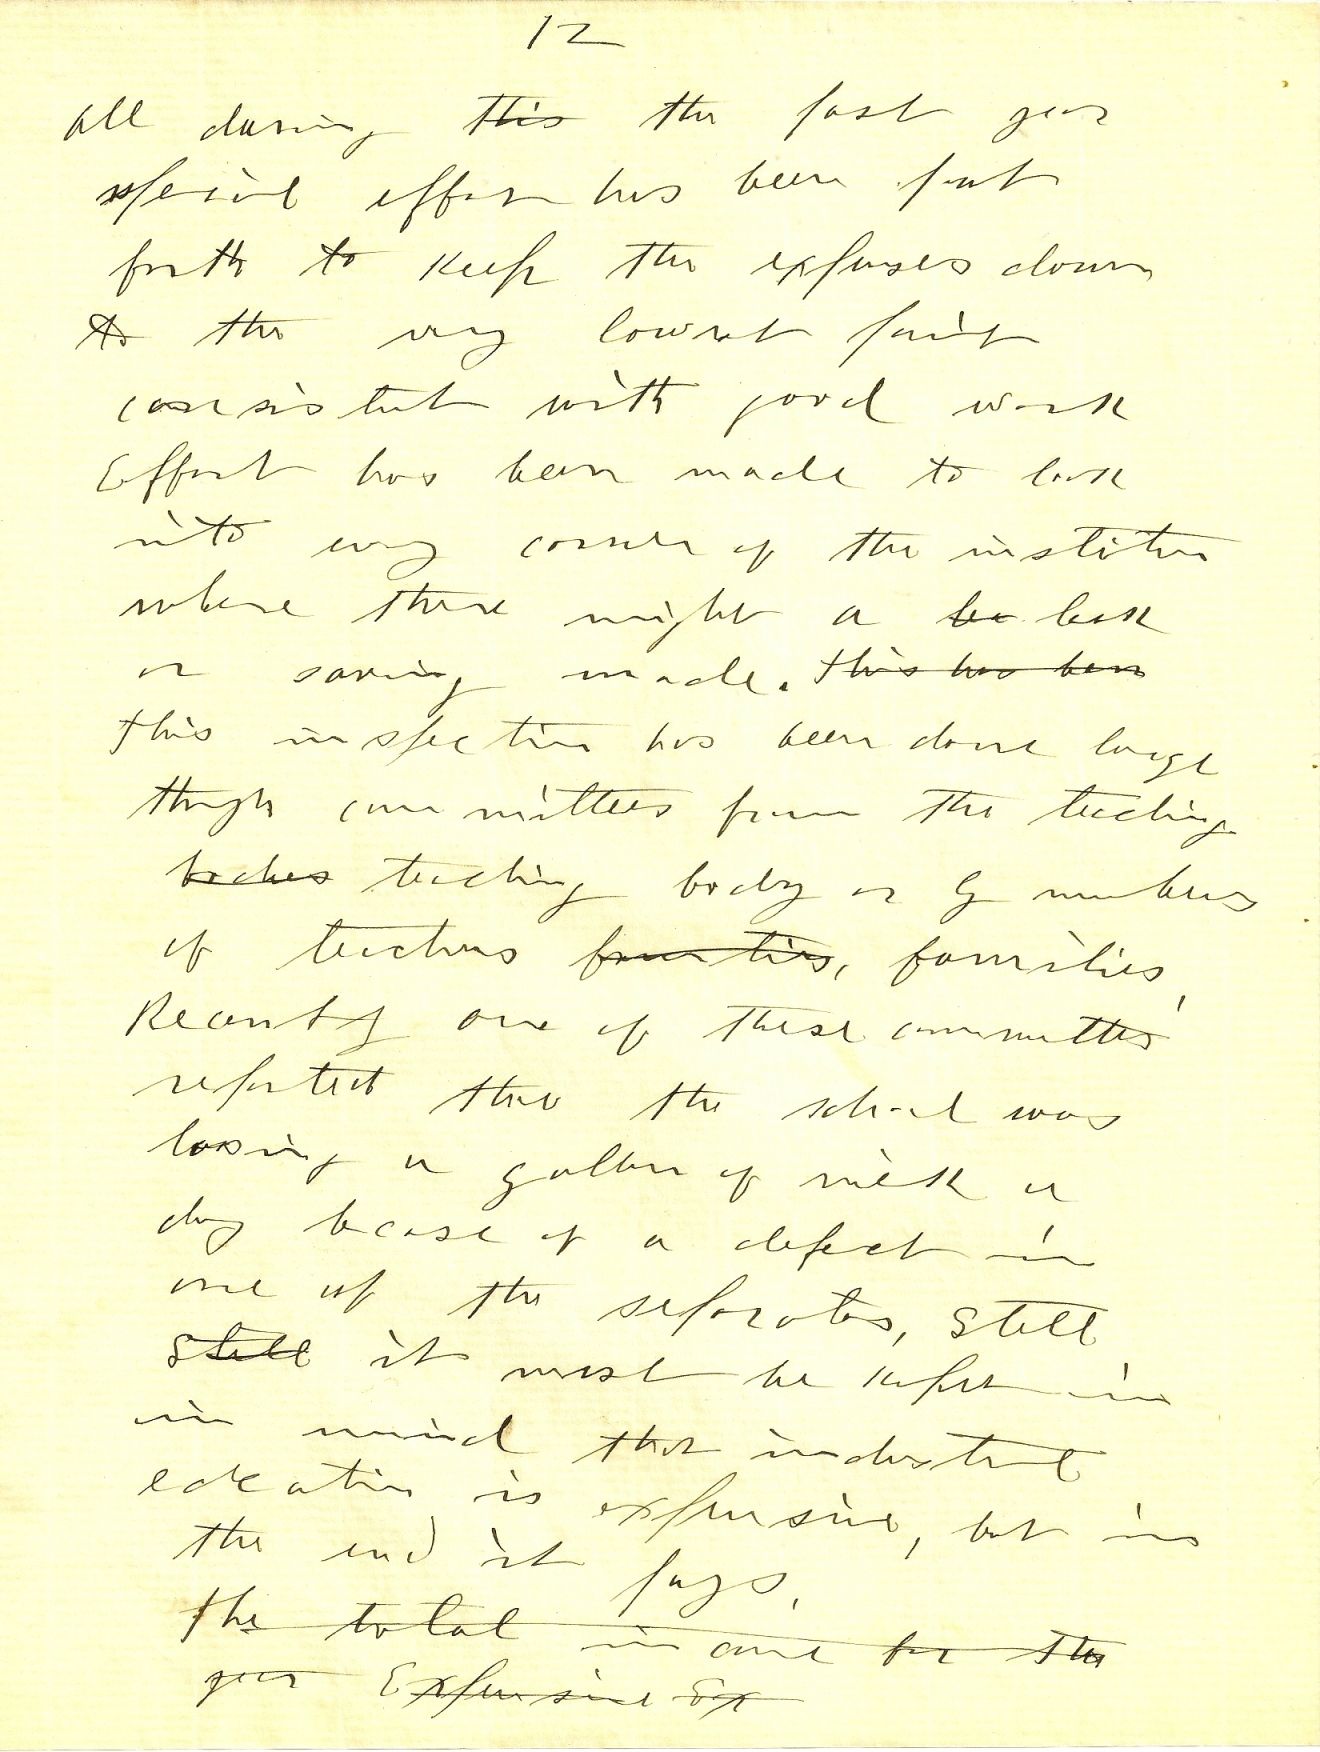 12
All during this the past year
special effort has been put
forth to keep the expenses down
to the very lowest point
consistent with good work
Effort has been made to look
into every corner of the institution
where there might a be leak
or saving made. This has been
This inspection has been done large
through committees from the teaching
bodies teaching body or by members
of teachers families, families,
Recently one of these committees
reported that the school was
losing a gallon of milk a
day because of a defect in
one of the separators, Still
Still it must be kept in
in mind that industrial
education is expensive, but in
the end it pays,
The total income for the
year Expensive Ex